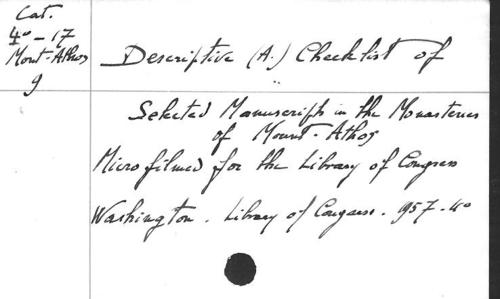 Cat.
4° - 17
Mont-Athos
9
Descriptive (A.) Checklist of
Selected Manuscripts in the Monasteries
of Mount-Athos
Microfilmed for the Library of Congress
Washington. Library of Congress. 957. 4°